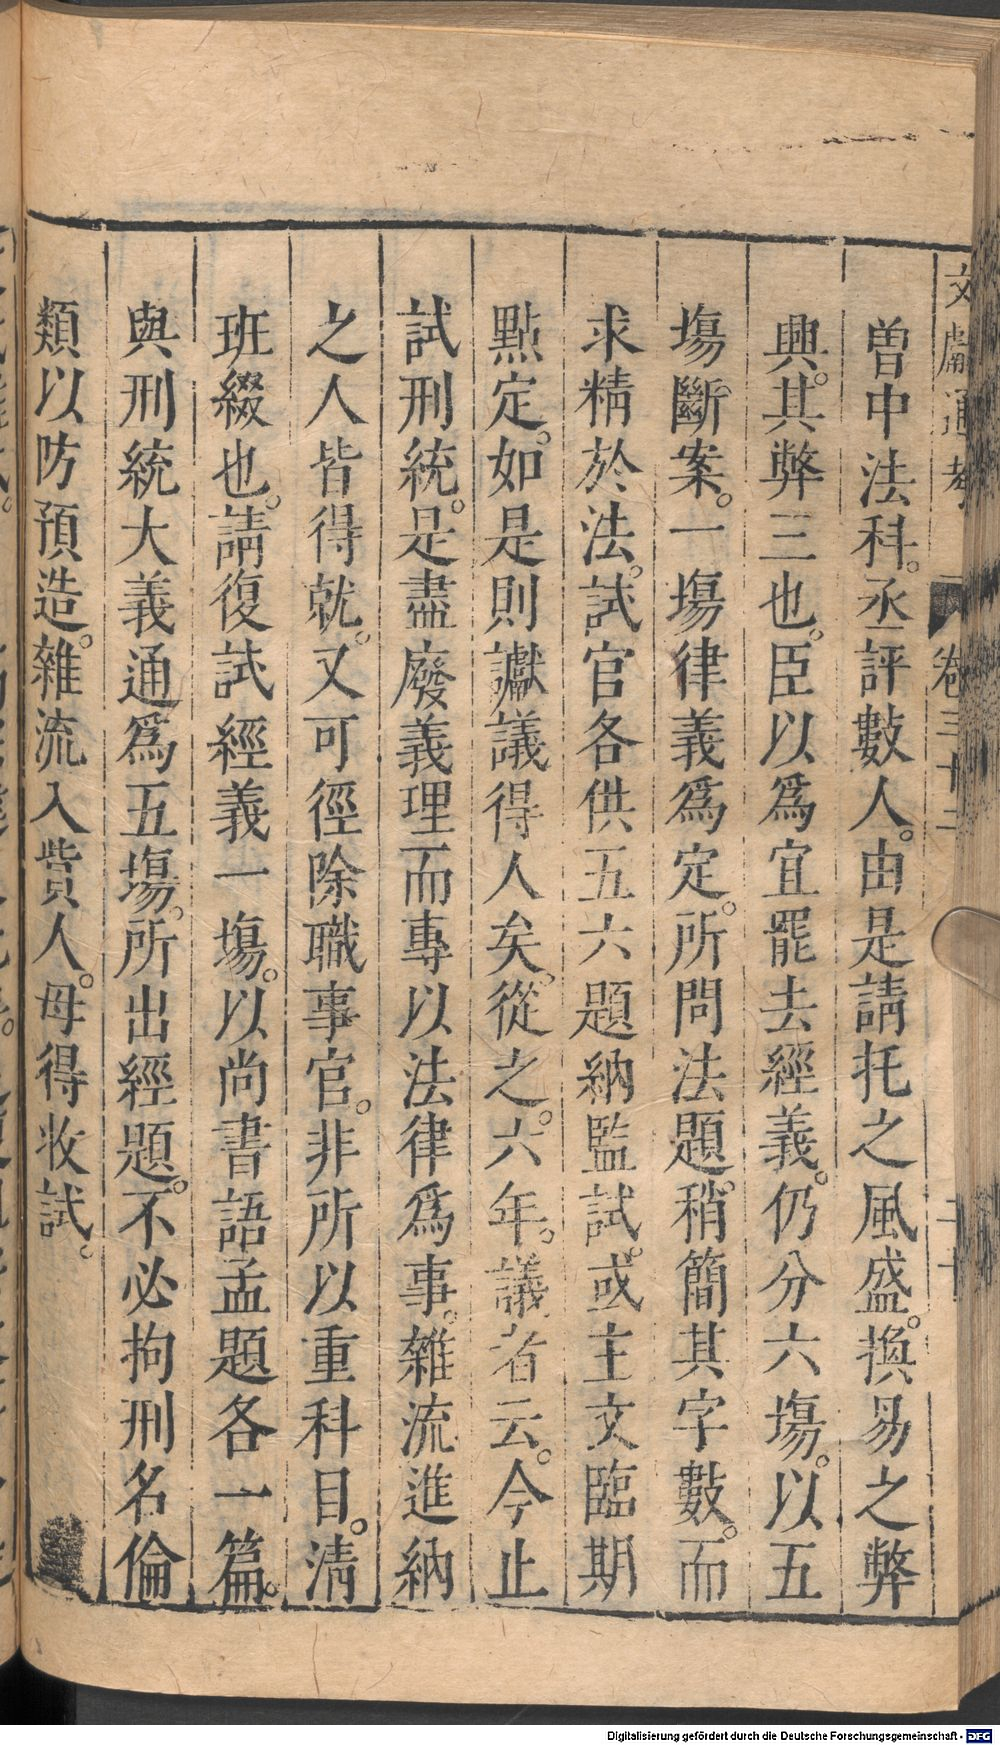 文獻通考 卷三十二
曽中法科。丞評數人。由是請托之風盛。換易之弊
興。其弊三也。臣以爲宜罷去經義。仍分六塲。以五
塲斷案。一塲律義爲定。所問法題。稍簡其字數。而
求精於法。試官各供五六題納監試。或主文臨期
點定。如是則讞議得人矣。從之。六年。議者云。今止
試刑統。是盡廢義理而專以法律爲事。雜流進納
之人皆得就。又可徑除職事官。非所以重科目。清
班綴也。請復試經義一塲。以尚書語孟題各一篇。
與刑統大義通爲五塲。所出經題。不必拘刑名倫
類以防預造。雜流入貲人。毋得收試。
Digitalisierung gefördert durch die Deutsche Forschungsgemeinschaft - DFG